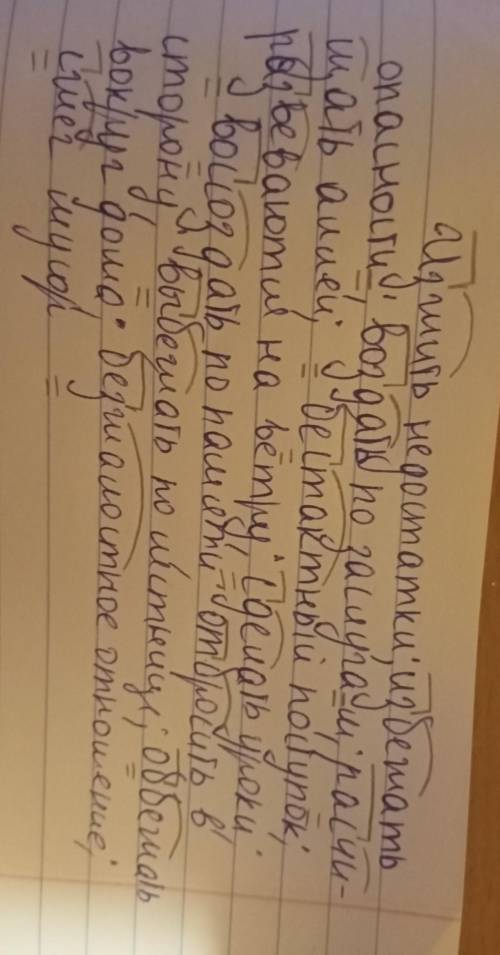 Изжить недостатки; избежать
опасности; воздать по заслугам; расчи-
щать аллей; бестактный поступок;
развеваются на ветру; сделать уроки;
воссоздать по памяти; отбросить в
сторону; взбежать по лестнице; оббежать
вокруг дома; безжалостное отношение;
сжег мусор